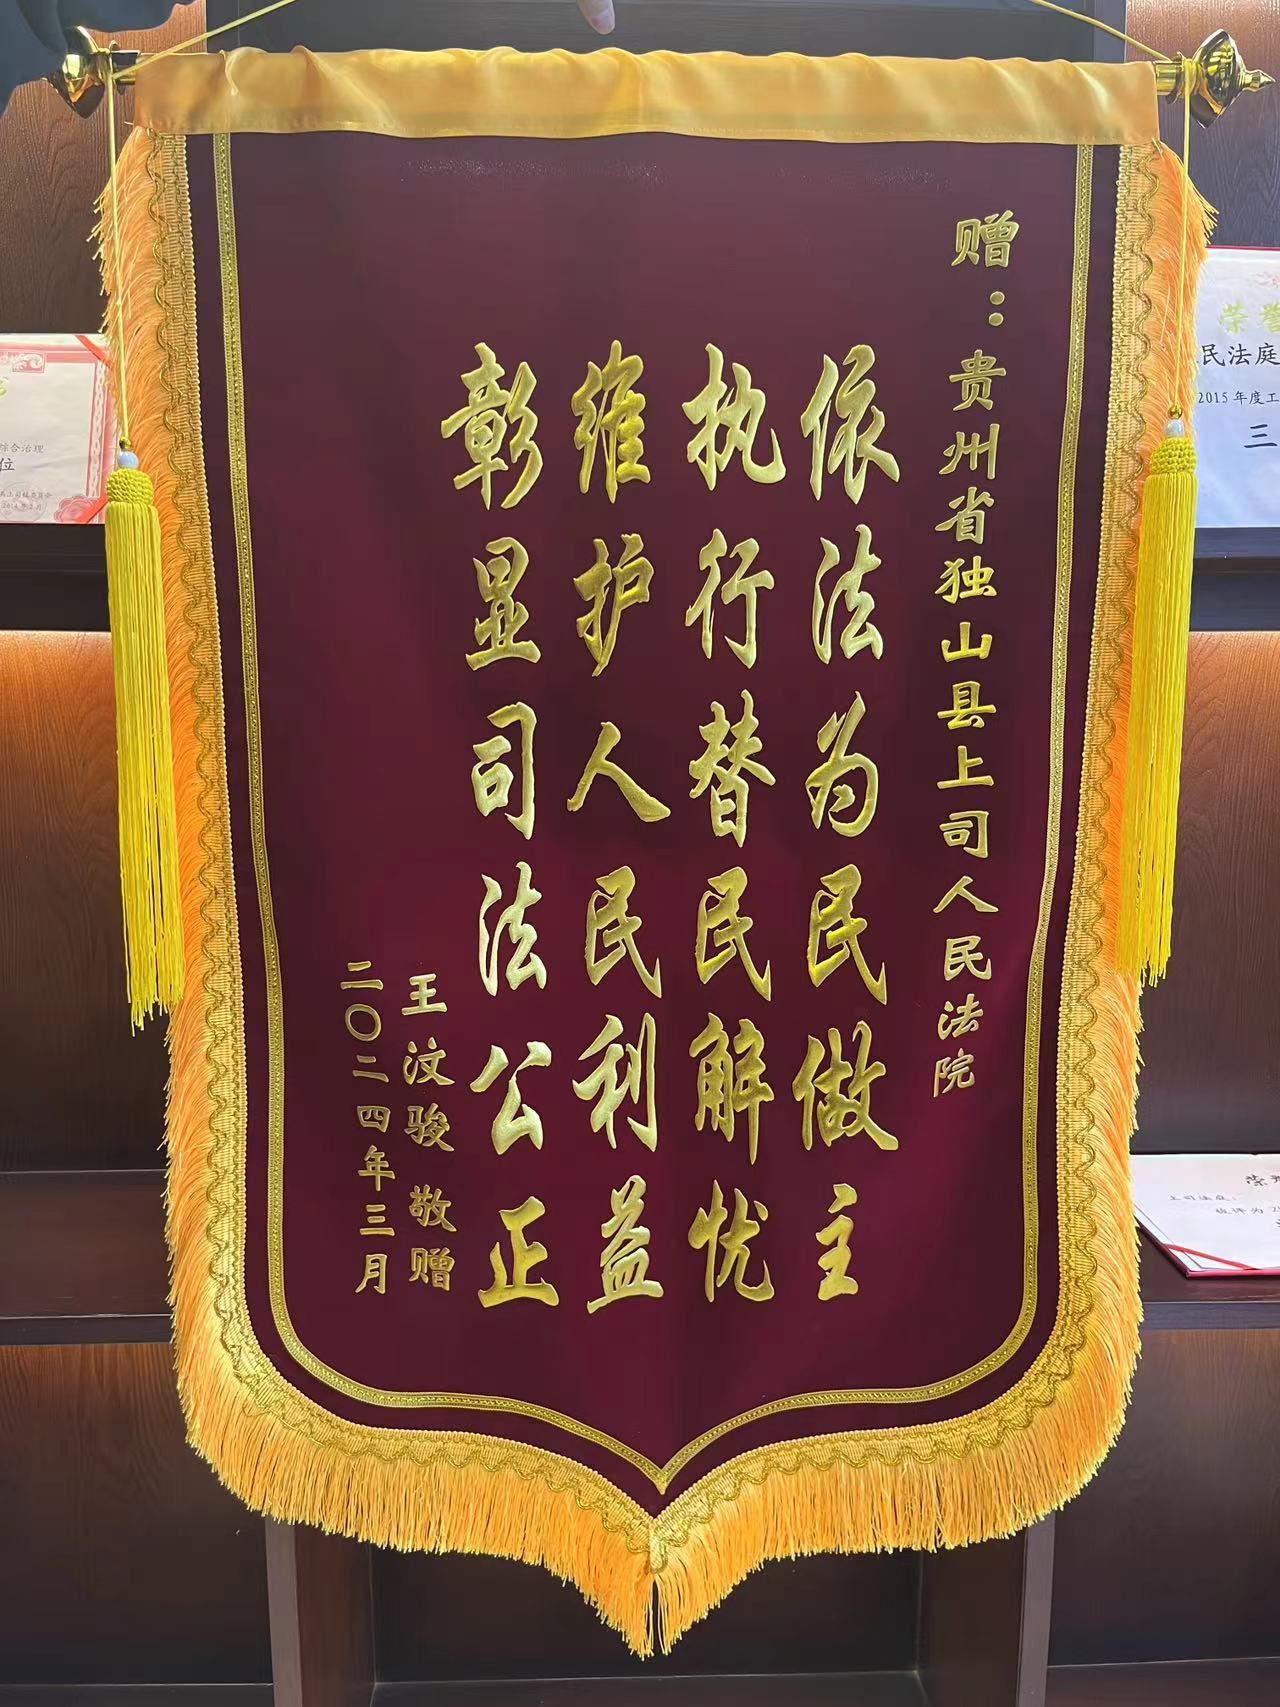 赠：贵州省独山县上司人民法院
依法为民做主
执行替民解忧
维护人民利益
彰显司法公正
王汶骏 敬赠
二〇二四年三月
综合治理
位
2014年2月
荣誉
民法庭
2015年度工
三
荣
上司法庭：
被评为2